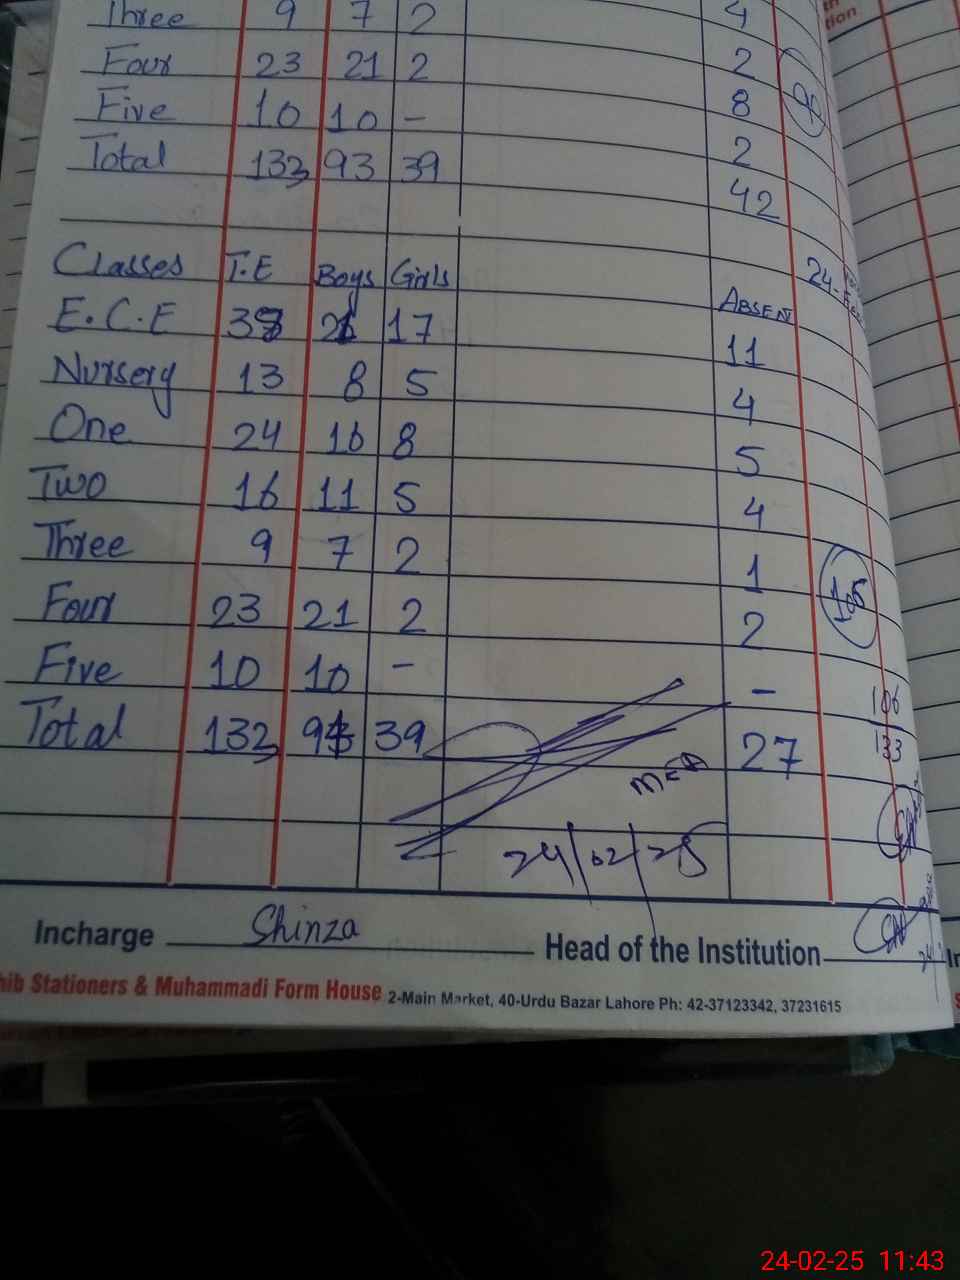 Three 9 7 2 4
Four 23 21 2 2
Five 10 10 - 8
Total 133 93 39 2
42
90
tion
Classes T.E Boys Girls ABSEN 24-Feb
E.C.E 38 21 17 11
Nursery 13 8 5 4
One 24 16 8 5
Two 16 11 5 4
Three 9 7 2 1
Four 23 21 2 2
Five 10 10 - -
Total 132 93 39 27
105
106
133
MEA
24/02/25
Incharge Shinza Head of the Institution
hib Stationers & Muhammadi Form House 2-Main Market, 40-Urdu Bazar Lahore Ph: 42-37123342, 37231615
24-02-25 11:43